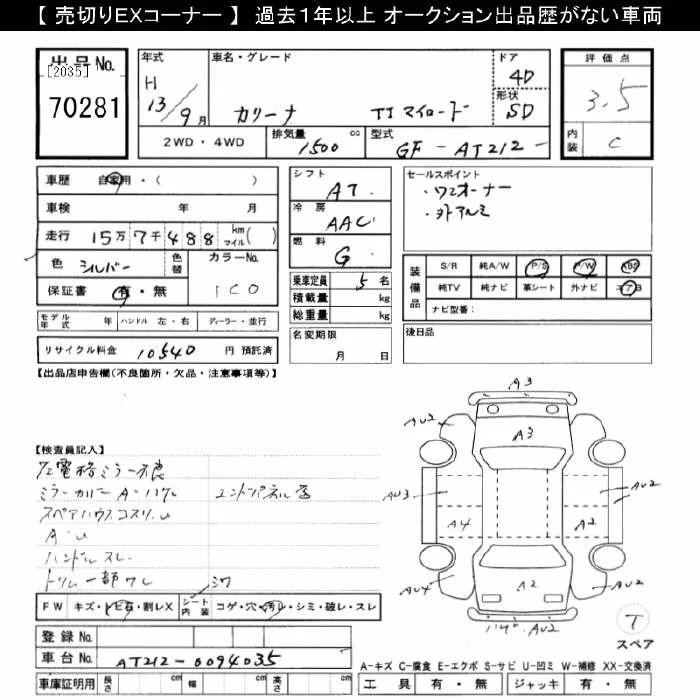 【 売切りEXコーナー 】 過去1年以上 オークション出品歴がない車両
出品No. [2035] 70281
年式 H13/9月
車名・グレード カリーナ TI マイロード
ドア 4D
形状 SD
評価点 3.5
内装 C
2WD・4WD
排気量 1500 cc
型式 GF-AT212-
車歴 自家用・( )
車検 年 月
走行 15万7千488 km マイル( )
色 シルバー 色替 カラーNo. 1C0
保証書 有・無
モデル年式 年 ハンドル 左・右 ディーラー・並行
リサイクル料金 10540 円 預託済
シフト AT
冷房 AAC
燃料 G
乗車定員 5 名
積載量 kg
総重量 kg
名変期限 月 日
セールスポイント
・ワンオーナー
・外アルミ
装備品 S/R 純A/W P/S P/W ABS
純TV 純ナビ 革シート 外ナビ エアB
ナビ型番:
後日品
【出品店申告欄(不良箇所・欠品・注意事項等)】
【検査員記入】
左電格ミラー不良
ミラーカバー A・ハゲ
エンドパネル
スペアハウスコスリ、U
A・U
ハンドルスレ
トリム一部ワレ
シワ
FW キズ・トビ石・割レX シート内装 コゲ・穴・汚レ・シミ・破レ・スレ
登録No.
車台No. AT212-0094035
車庫証明用 長さ cm 幅 cm 高さ cm
A3
AU2
A3
AU3
AU2
A4
A2
AU4
A2
AU2
ハゲ AU2
T
スペア
A−キズ C−腐食 E−エクボ S−サビ U−凹ミ W−補修 XX−交換済
工具 有・無 ジャッキ 有・無